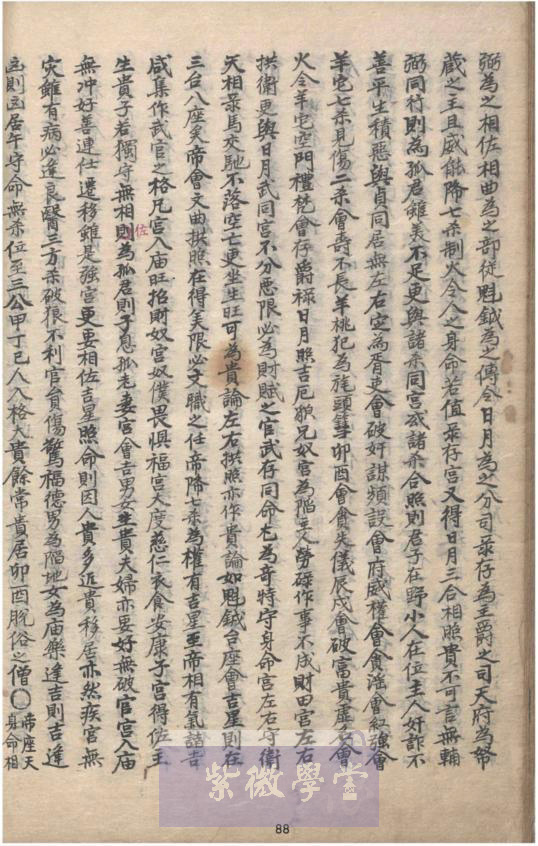 弼為之相佐相曲為之部從魁鉞為之傳令日月為之分司彔存為主爵之司天府為帑
藏之主且威能降七杀制火令人之身命若值彔存宮又得日月三合相照貴不可言無輔
弼同行則為孤君雖美不足更與諸杀同宮或諸杀合照則君子在野小人在位主人奸詐不
善平生積惡與貞同居無左右定為胥吏會破奸謀頻誤會府威權會貪滛會紅強會
羊宅七杀見傷二杀會壽不長羊桃犯為旄頭彗卯酉會貪失儀辰戌會破富貴虛名會
火令羊宅空門禮梵會存爵祿日月照吉厄狼兄奴宮為陷主勞碌作事不成財田宮左右
拱衛更與日月武同宮不分惡限必為財賦之官武存同命尤為奇特守身命宮左右守衛
天相彔馬交馳不落空亡更坐生旺可為貴論左右拱照亦作貴論如魁鉞台座會吉星則在
三台八座矣帝會文曲拱照在得美限必文職之任帝降七杀為權有吉星至帝相有氣諸吉
咸集作武官之格凡宮入庙旺招財奴宮奴僕畏惧福宮大度慈仁衣食安康子宮得佐主
生貴子若獨守無相佐則為孤君則子息孤老妻宮會吉男女生貴夫婦亦要好無破官宮入庙
無冲好善連仕遷移雖是強宮更要相佐吉星照命則因人貴多近貴移居亦然疾宮無
灾雖有病必逢良醫三方杀破狼不利官負傷驚福德男為陷地女為庙樂逢吉則吉逢
凶則凶居午守命無杀位至三公甲丁己人入格大貴餘常貴居卯酉脫俗之僧〇帝座天
身命相
紫微學堂
88